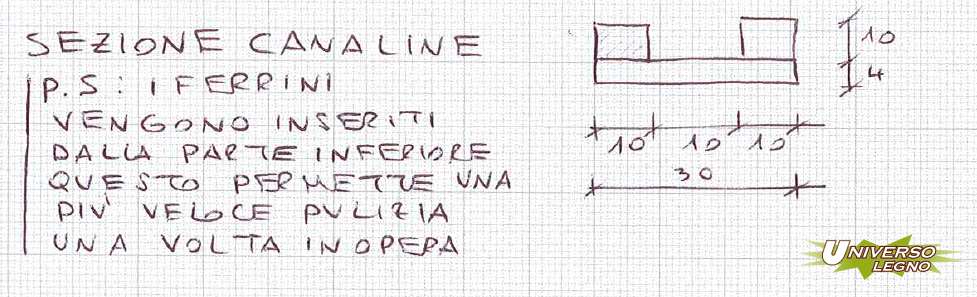 SEZIONE CANALINE
P.S: I FERRINI
VENGONO INSERITI
DALLA PARTE INFERIORE
QUESTO PERMETTE UNA
PIU' VELOCE PULIZIA
UNA VOLTA IN OPERA
10
4
10 10 10
30
UNIVERSO
LEGNO